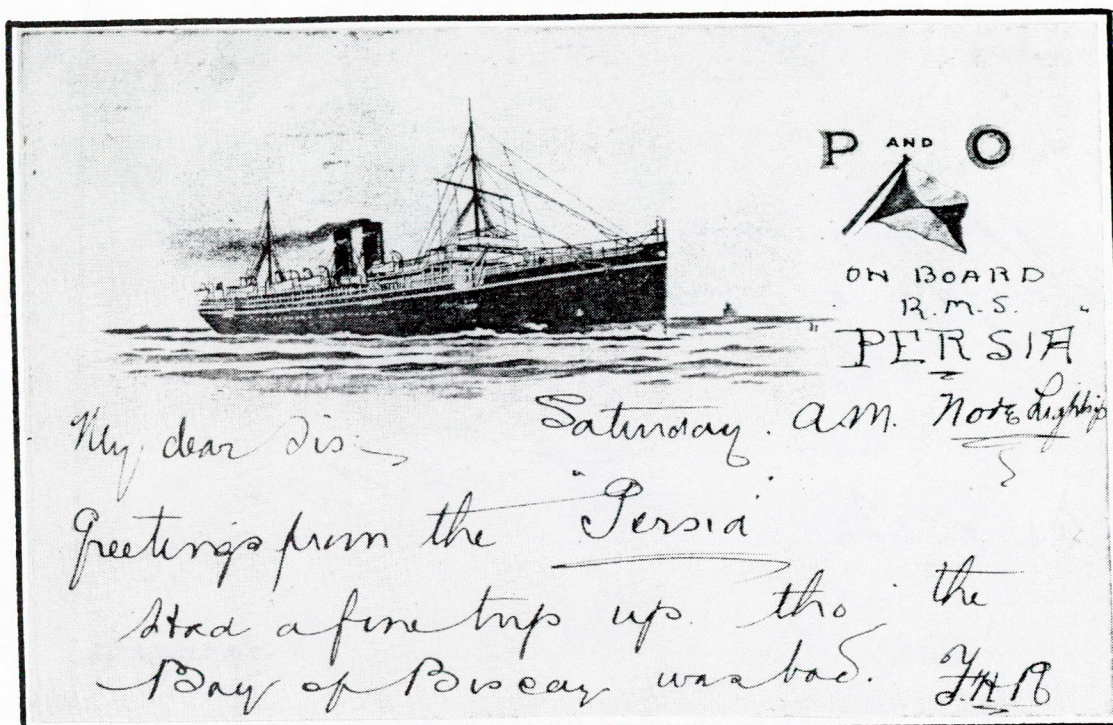 P AND O
ON BOARD
R.M.S.
"PERSIA"
Saturday. A.M. Nore Lightship
My dear Sis
Greetings from the "Persia"
Had a fine trip up. tho the
Bay of Biscay was bad. FHR